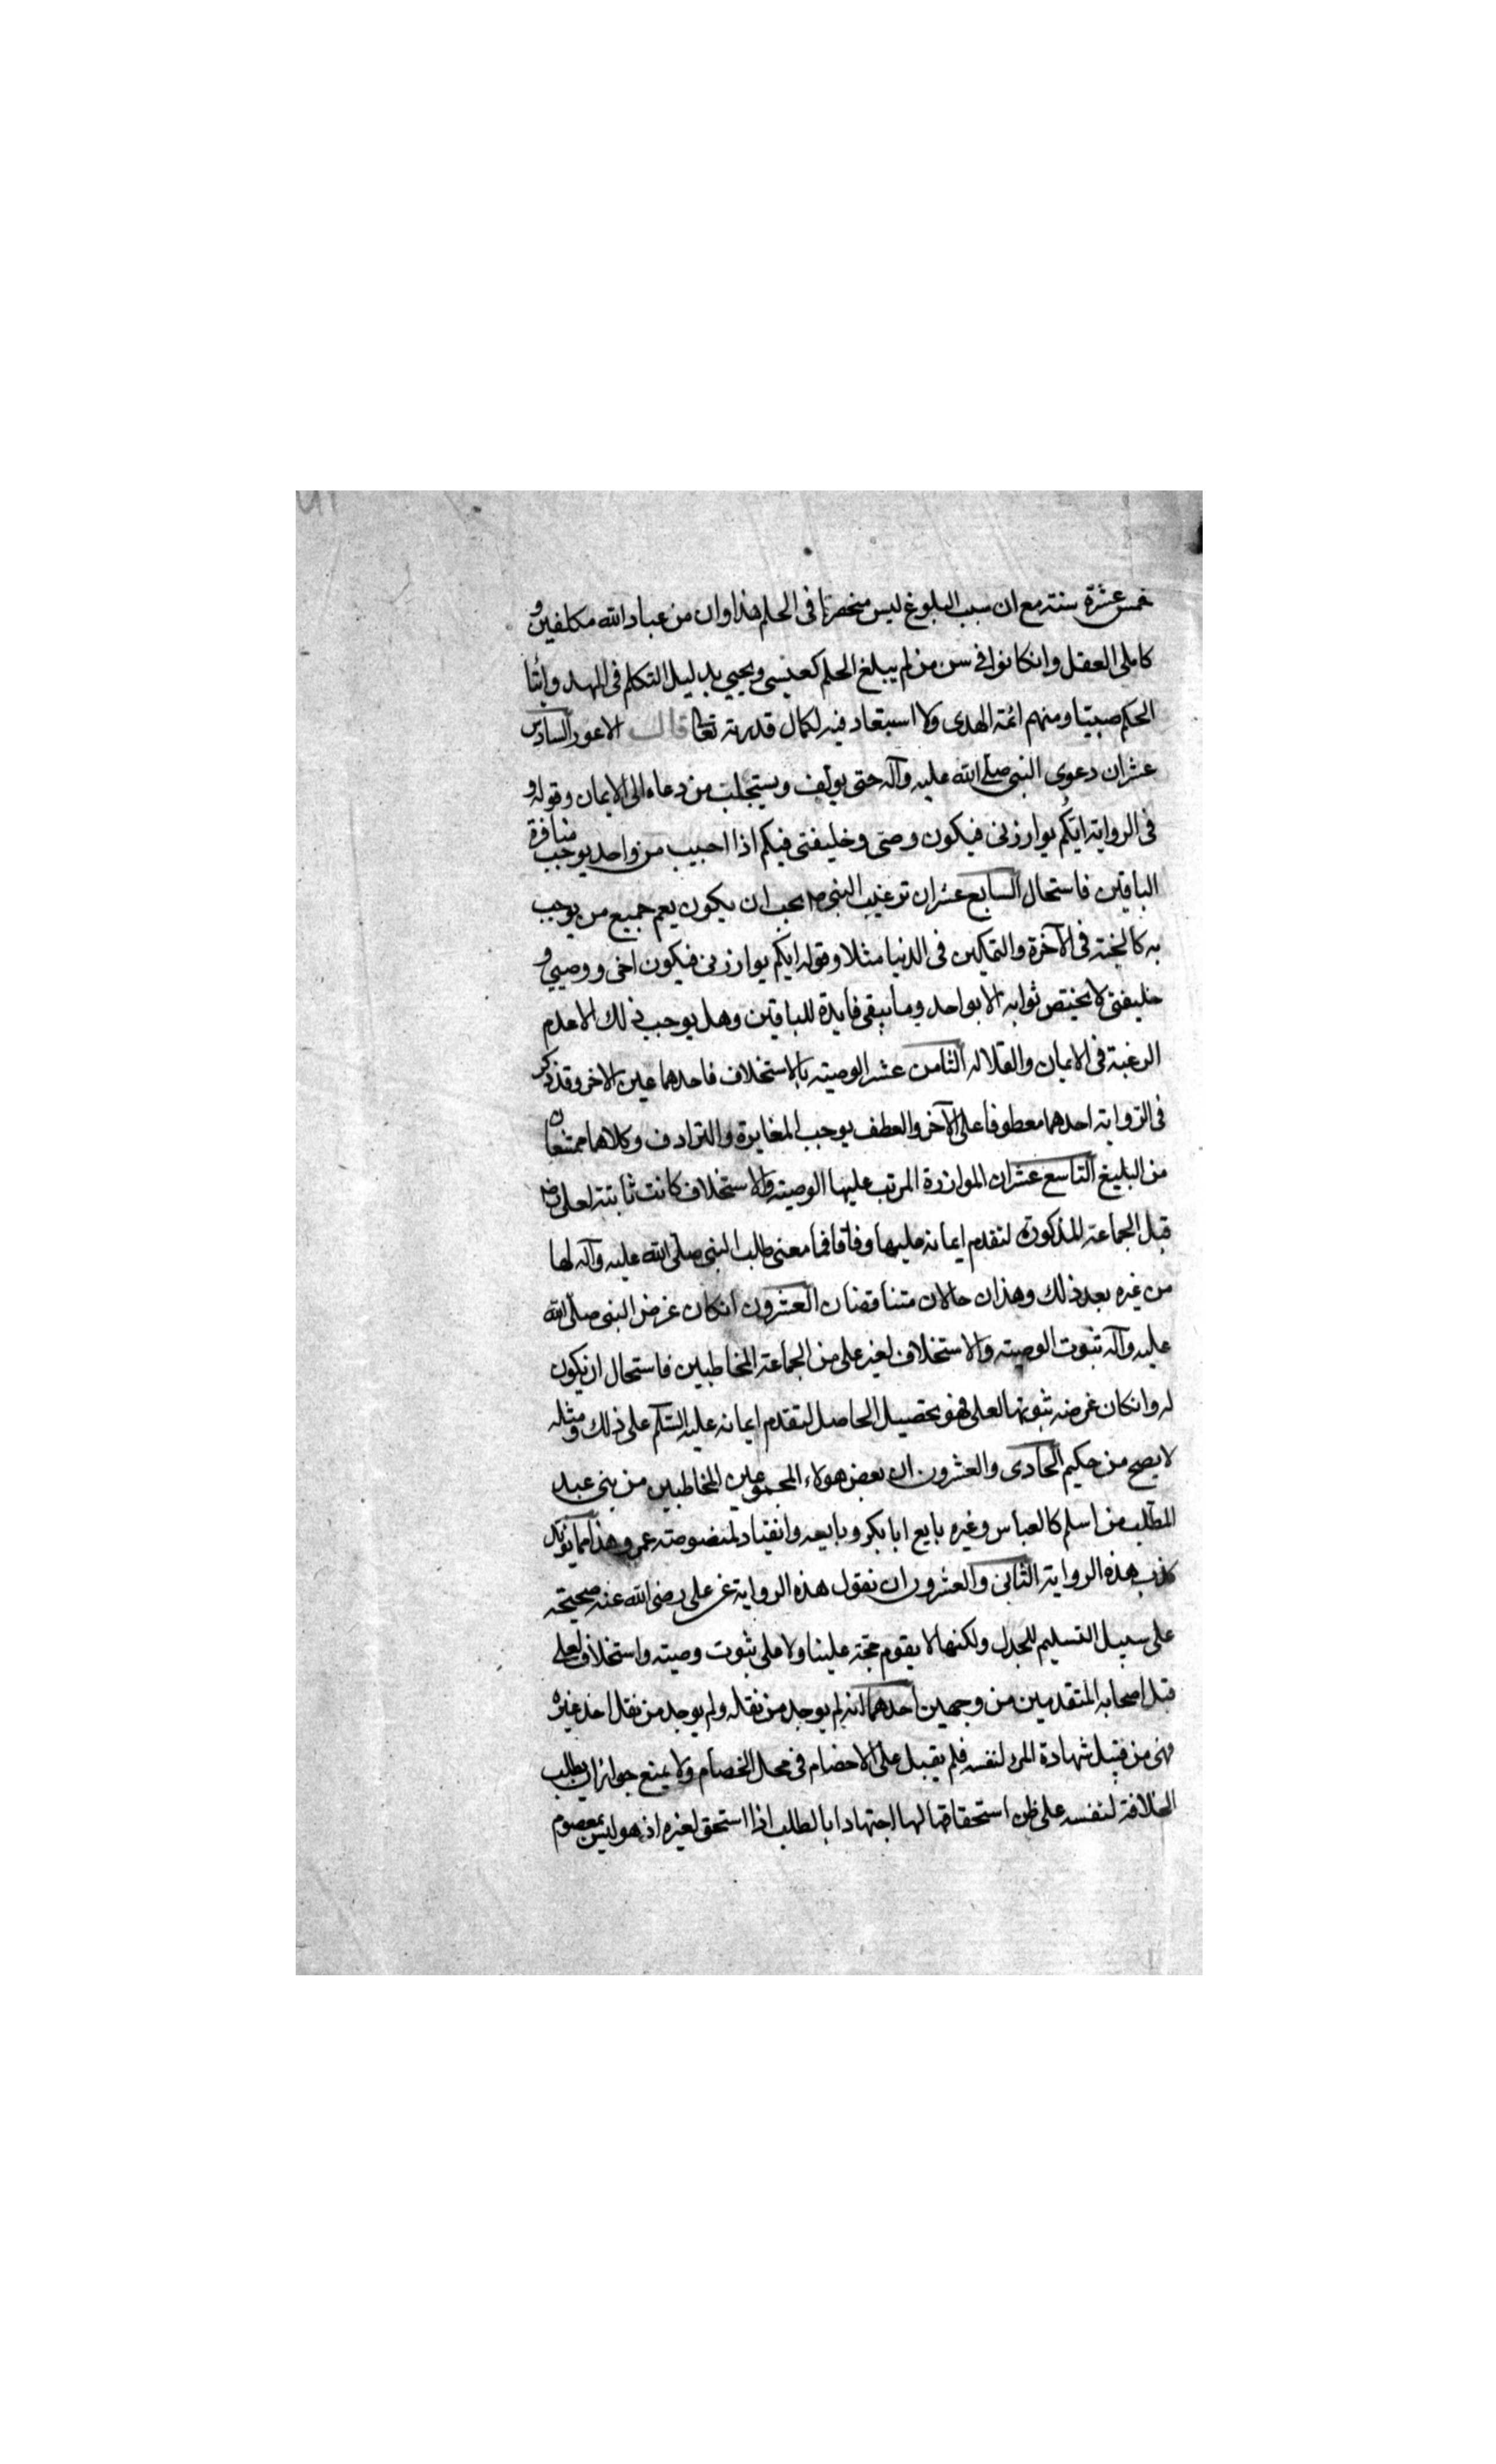 خمس عشرة سنة مع ان سبب البلوغ ليس منحصرا فى الحلم هذا وان من عباد الله مكلفين و
كاملى العقل وانكانوا فى سن من لم يبلغ الحلم كعيسى ويحيى بدليل التكلم فى المهد وايتا
الحكم صبيا ومنهم ائمة الهدى ولا استبعاد فيه لكمال قدرته تعا قال الاعور السادس
عشر ان دعوى النبى صلى الله عليه وآله حتى يؤلف ويستجلب من دعاه الى الايمان وقوله و
فى الرواية ايكم يوازرنى فيكون وصى وخليفتى فيكم اذا احبيب من واحد يوجب منافرة
الباقين فاستحال السابع عشر ان ترغيب النبى ص يجب ان يكون يعم جميع من يوجب
به كالجنة فى الآخرة والتمكين فى الدنيا مثلا وقوله ايكم يوازرنى فيكون اخى ووصيى و
خليفتى لا يختص ثوابه الا بواحد وما يبقى فايدة للباقين وهل يوجب ذلك الا عدم
الرغبة فى الايمان والقلا له الثامن عشر الوصية بالاستخلاف فاحدهما عين الاخر وقد ذكر
فى الرواية احدهما معطوفا على الآخر والعطف يوجب المغايرة والترادف وكلاهما ممتنعان
من البليغ التاسع عشر ان الموازرة المرتب عليها الوصية والاستخلاف كانت ثابتة لعلى رض
قبل الجماعة المذكورة لتقدم ايمانه عليها وفاقا فما معنى طلب النبى صلى الله عليه وآله لها
من غيره بعد ذلك وهذان حالان متناقضان العشرون انكان غرض النبى صلى الله
عليه وآله ثبوت الوصية والاستخلاف لغير على من الجماعة المخاطبين فاستحال ان يكون
له وانكان غرضه ثبوتها لعلى فهو تحصيل الحاصل لتقدم ايمانه عليه السلم على ذلك ومثله
لا يصح من حكيم الحادى والعشرون ان بعض هولاء المجموعين المخاطبين من بنى عبد
المطلب من اسلم كالعباس وغيره بايع ابا بكر وبايعه وانقياد لمنصوصته عمر وهذا مما يؤيد
كذب هذه الرواية الثانى والعشرون ان نقول هذه الرواية عن على رضى الله عنه صحيحة
على سبيل التسليم للجدل ولكنها لا يقوم حجة علينا ولا على ثبوت وصيته واستخلاف لعلى
قبل اصحابه المتقدمين من وجهين احدهما انه لم يوجد من نقله ولم يوجد من نقل احد غيره
فهى من قبيل شهادة المرء لنفسه فلم يقبل على الاخصام فى محل الخصام ولا يمنع جواز ان يطلب
الخلافة لنفسه على ظن استحقاقها لها اجتهادا بالطلب اذا استحق لغيره اذ هو ليس بمعصوم